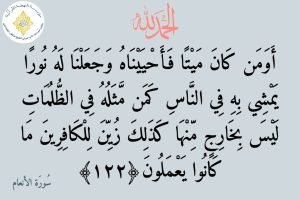 الحمد لله
أَوَمَن كَانَ مَيْتًا فَأَحْيَيْنَاهُ وَجَعَلْنَا لَهُ نُورًا
يَمْشِي بِهِ فِي النَّاسِ كَمَن مَّثَلُهُ فِي الظُّلُمَاتِ
لَيْسَ بِخَارِجٍ مِّنْهَا كَذَلِكَ زُيِّنَ لِلْكَافِرِينَ مَا
كَانُوا يَعْمَلُونَ ﴿١٢٢﴾
سُورَة الأنعام